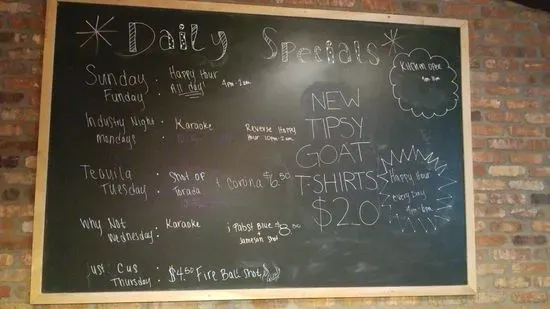 * Daily Specials *
Sunday Funday : Happy Hour All day!
Industry Night mondays : Karaoke Reverse Happy Hour 10pm-2am
Tequila Tuesday : Shot of Torada + Corona $6.50
Why Not Wednesday : Karaoke ; Pabst Blue + Jameson Shot $8.50
Just Cus Thursday : $4.50 Fire Ball Shots
NEW
TIPSY
GOAT
T-SHIRTS
$20
Kitchen open
Happy Hour
everyday